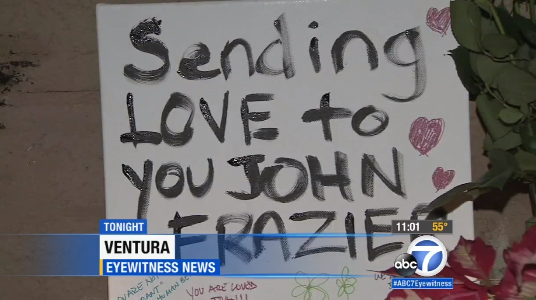 Sending
LOVE to
YOU JOHN
FRAZIER
YOU ARE LOVED
TONIGHT
VENTURA
EYEWITNESS NEWS
11:01 55°
abc 7
#ABC7Eyewitness